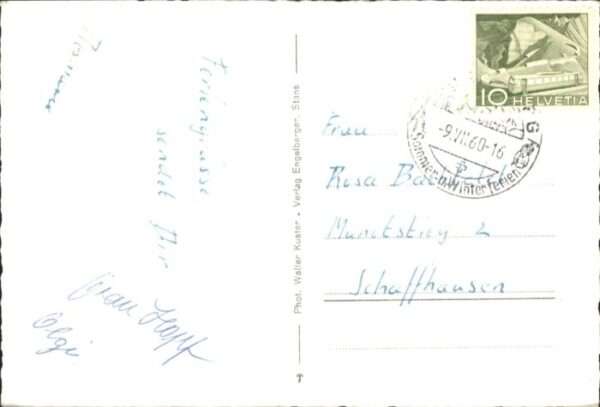 Feriengrüsse
sendet Dir
Frau Hopf
Olgi
Phot. Walter Küster • Verlag Engelberger, Stans
10 HELVETIA
-9.VII.60-16
Sommer u. Winterferien
Frau
Rosa
Munotstieg 2
Schaffhausen